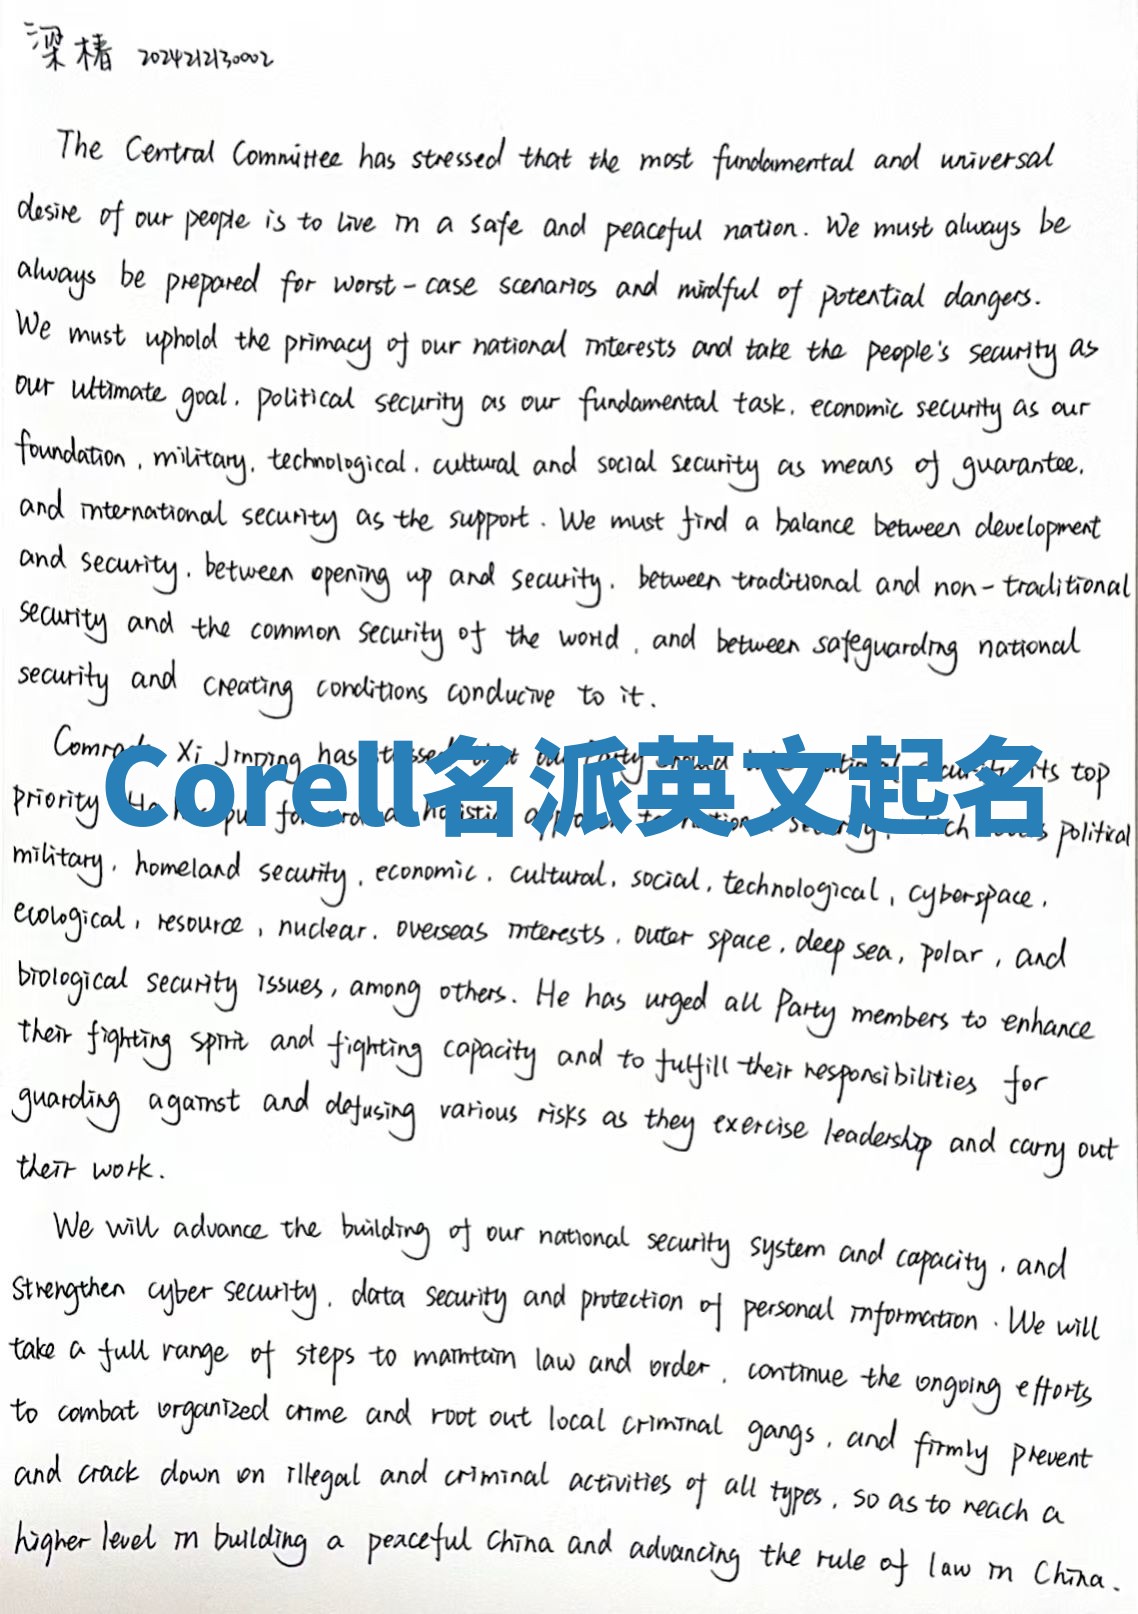 梁椿 2024212130002
The Central Committee has stressed that the most fundamental and universal
desire of our people is to live in a safe and peaceful nation. We must always be
always be prepared for worst-case scenarios and mindful of potential dangers.
We must uphold the primacy of our national interests and take the people's security as
our ultimate goal, political security as our fundamental task, economic security as our
foundation, military, technological, cultural and social security as means of guarantee,
and international security as the support. We must find a balance between development
and security, between opening up and security, between traditional and non-traditional
security and the common security of the world, and between safeguarding national
security and creating conditions conducive to it.
Xi Jinping has its top
Corell名派英文起名
priority political
military, homeland security, economic, cultural, social, technological, cyberspace,
ecological, resource, nuclear, overseas interests, outer space, deep sea, polar, and
biological security issues, among others. He has urged all Party members to enhance
their fighting spirit and fighting capacity and to fulfill their responsibilities for
guarding against and defusing various risks as they exercise leadership and carry out
their work.
We will advance the building of our national security system and capacity, and
strengthen cyber security, data security and protection of personal information. We will
take a full range of steps to maintain law and order, continue the ongoing efforts
to combat organized crime and root out local criminal gangs, and firmly prevent
and crack down on illegal and criminal activities of all types, so as to reach a
higher level in building a peaceful China and advancing the rule of law in China.